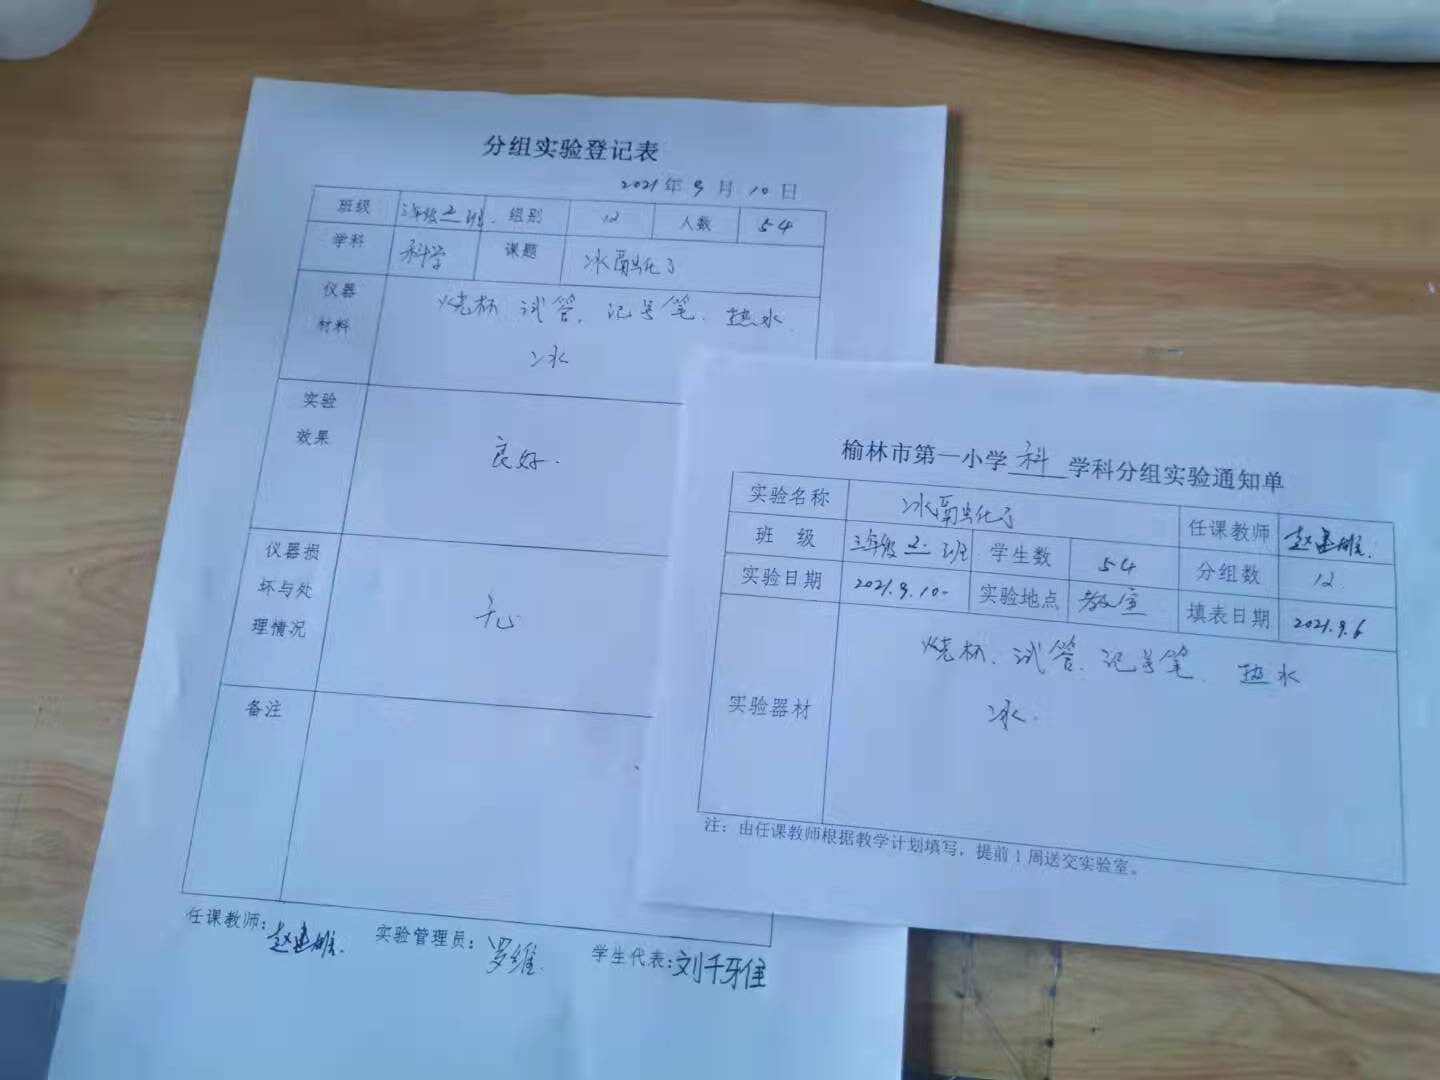 分组实验登记表
2021年9月10日
班级 三年级2班. 组别 12 人数 54
学科 科学 课题 冰融化了
仪器材料 烧杯、试管、记号笔、热水
冰
实验效果 良好.
仪器损坏与处理情况 无
备注
任课教师:赵建雄. 实验管理员:罗维. 学生代表:刘千雅
榆林市第一小学 科 学科分组实验通知单
实验名称 冰融化了 任课教师 赵建雄.
班级 三年级2.班 学生数 54 分组数 12
实验日期 2021.9.10. 实验地点 教室 填表日期 2021.9.6
实验器材 烧杯、试管、记号笔、热水
冰.
注：由任课教师根据教学计划填写，提前1周送交实验室。